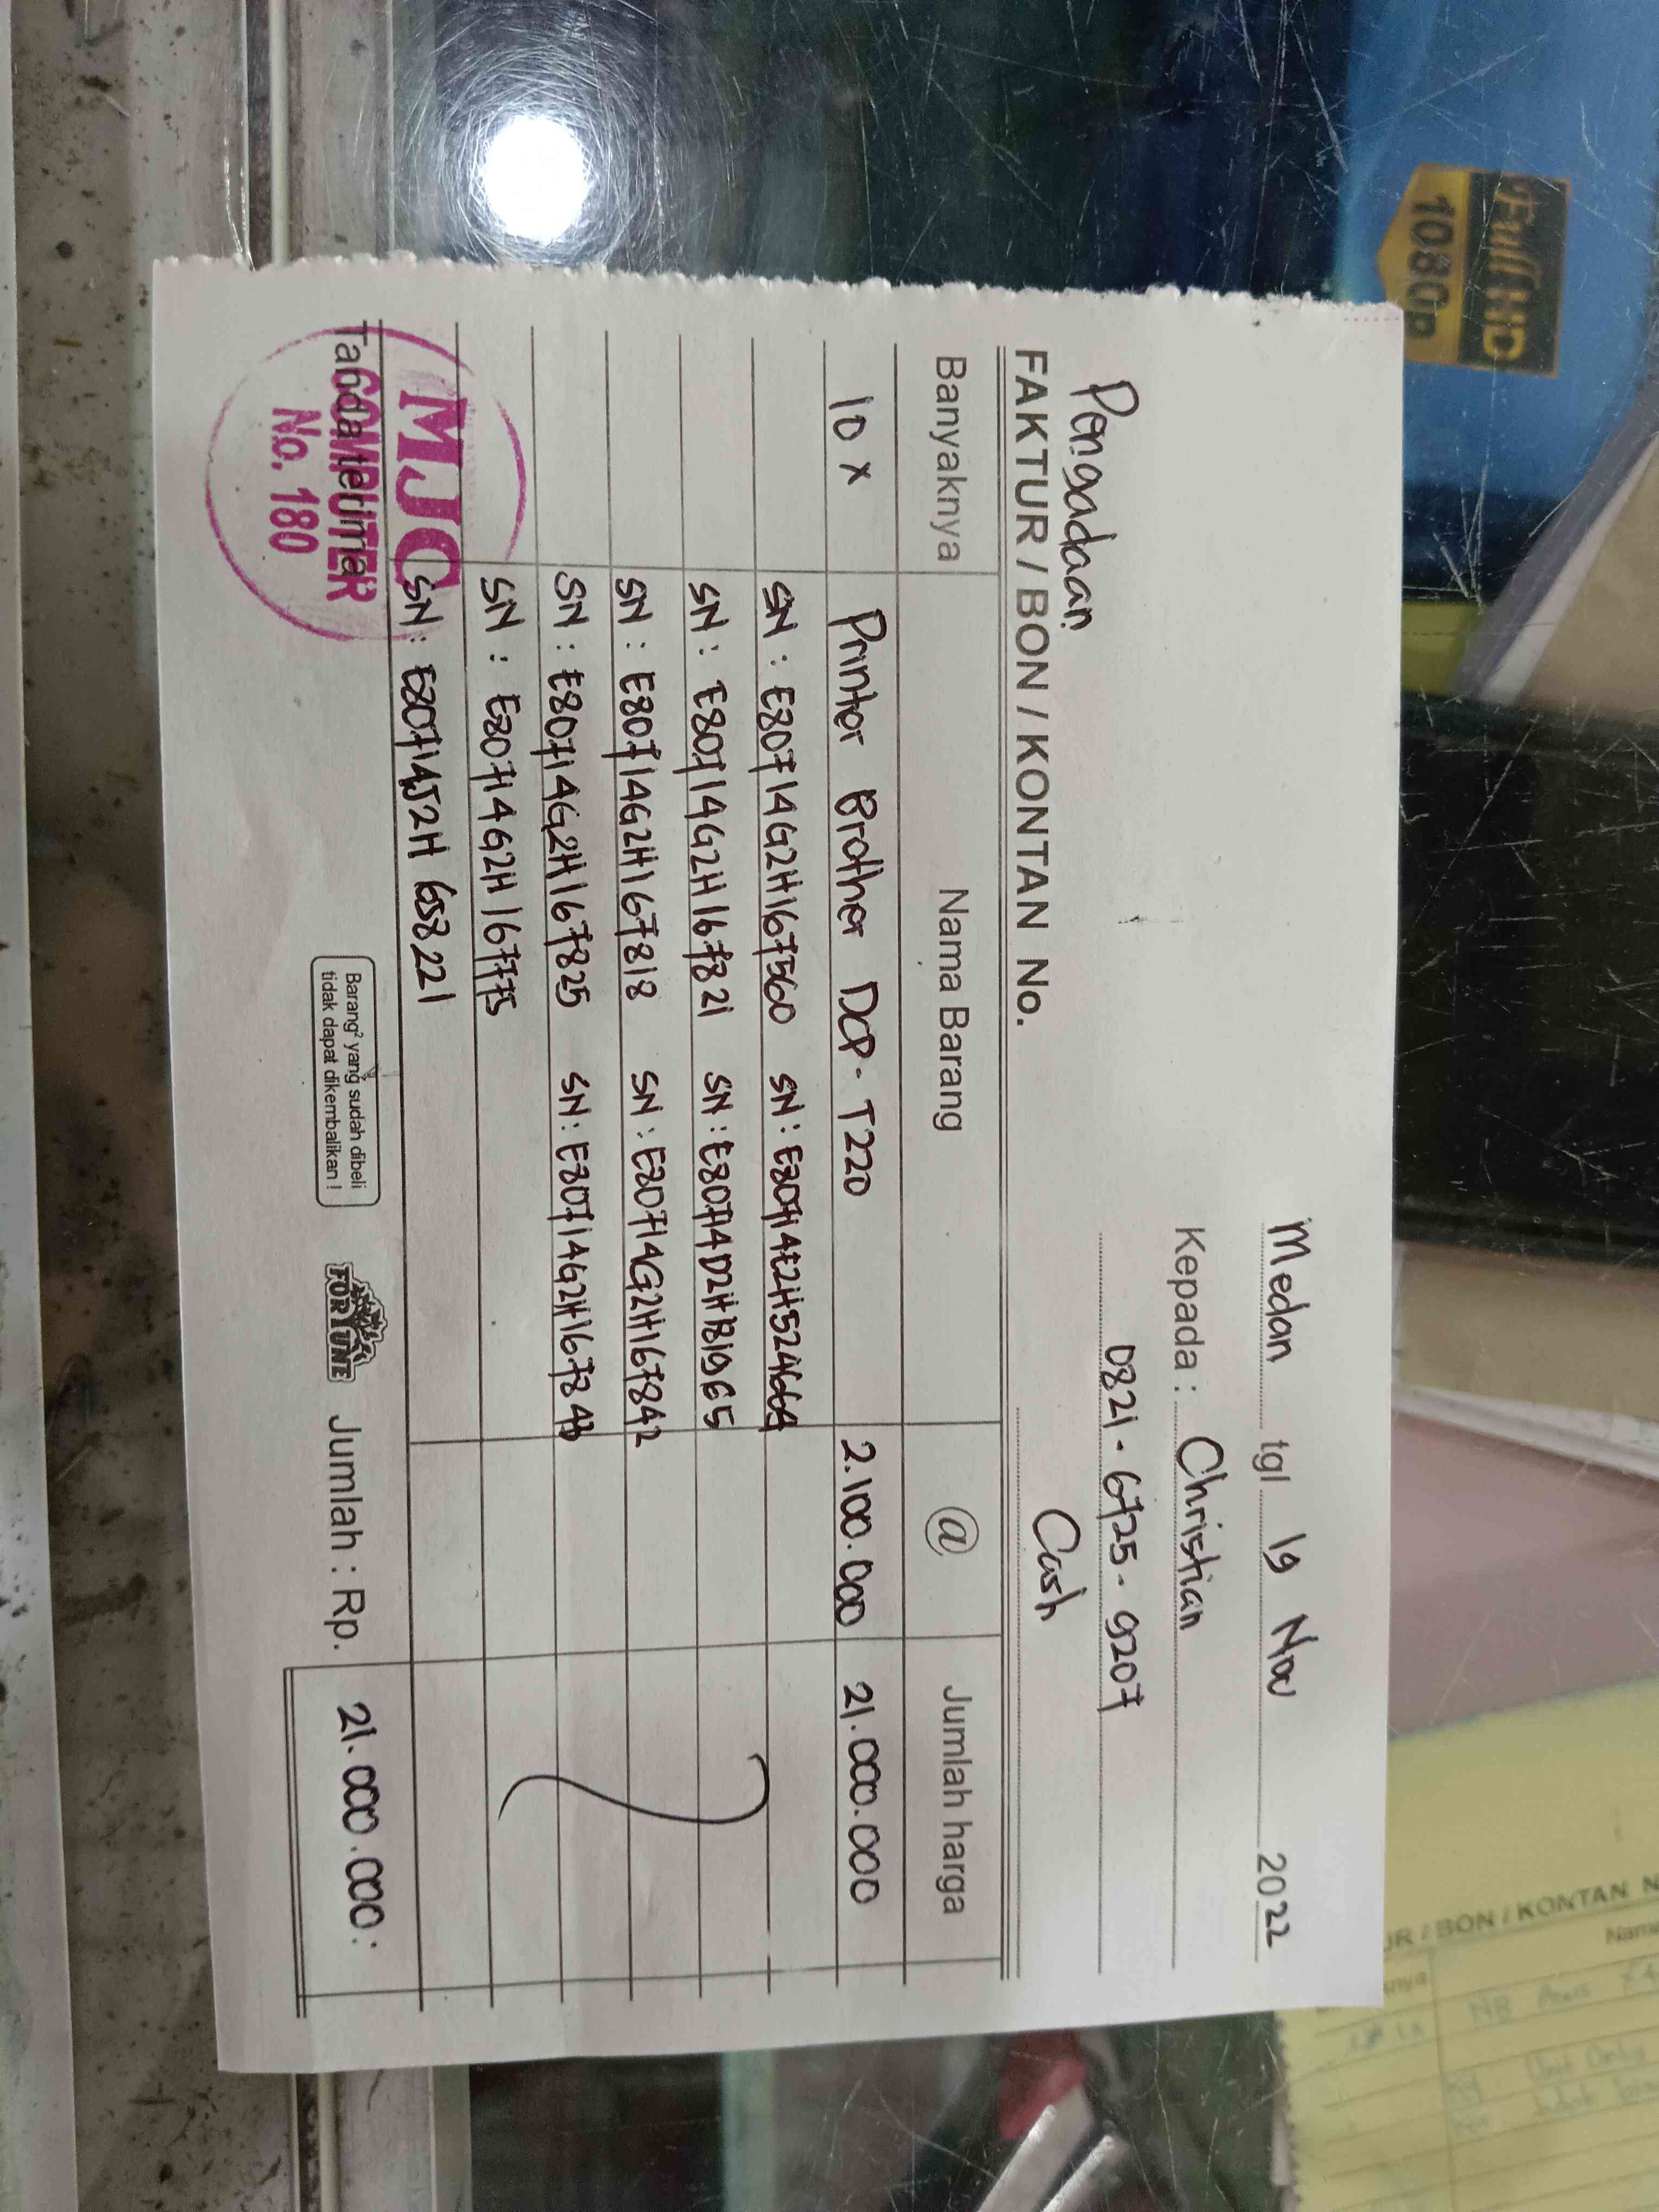 Medan tgl 19 Nov 2022
Kepada : Christian
0821-6725-9207
Pengadaan
FAKTUR / BON / KONTAN No. Cash
Banyaknya Nama Barang @ Jumlah harga
10 x Printer Brother DCP-T220 2.100.000 21.000.000
SN : E80714G2H167560 SN : E80714E2H524664
SN : E80714G2H167821 SN : E80714D2H131965
SN : E80714G2H167818 SN : E80714G2H167842
SN : E80714G2H167825 SN : E80714G2H167843
SN : E80714G2H167775
SN : E80714J2H658221
MJC
COMPUTER
No. 180
Tanda terima
Barang² yang sudah dibeli
tidak dapat dikembalikan !
FORTUNE
Jumlah : Rp. 21.000.000:
Full HD
1080p
UR / BON / KONTAN N